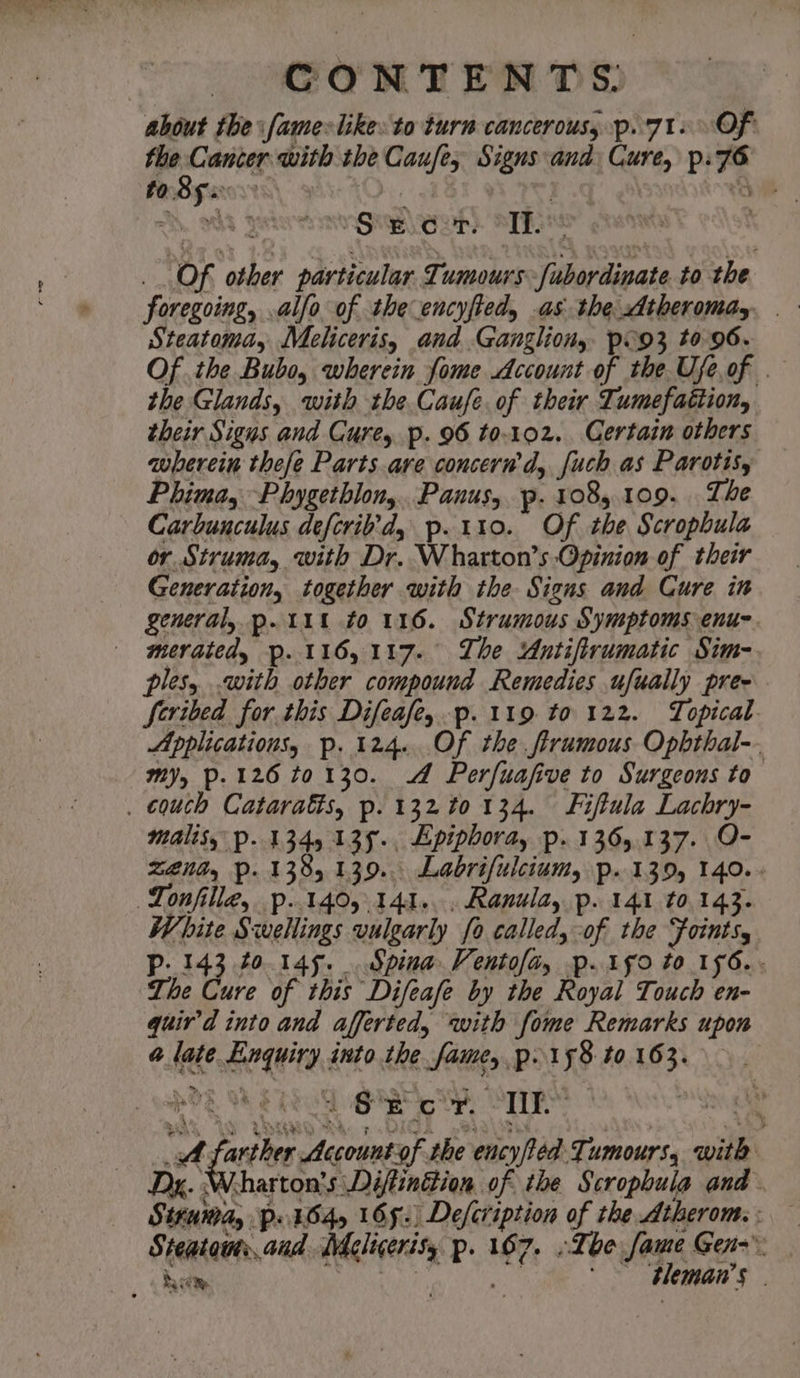 CONTENTS.
about the ſame like to turn cancerous, p. 71. Of
the Cancer with the Cauſe, Signs and Cure, p. 76
to 85.
SECT. II.
Of other particular Tumours ſubordinate to the
foregoing, alſo of the encyſted, as the Atheroma,
Steatoma, Meliceris, and Ganglion, p. 93 to 96.
Of the Bubo, wherein ſome Account of the Uſe of
the Glands, with the Cauſe of their Tumefaction,
their Signs and Cure, p. 96 to 102. Certain others
wherein theſe Parts are concern'd, ſuch as Parotis,
Phima, Phygethlon, Panus, p. 108, 109. The
Carbunculus deſcrib'd, p. 110. Of the Scrophula
or Struma, with Dr. Wharton's Opinion of their
Generation, together with the Signs and Cure in
general, p. 111 to 116. Strumous Symptoms enu-
merated, p. 116, 117. The Antiſtrumatic Sim-
ples, with other compound Remedies uſually pre-
ſcribed for this Diſeaſe, p. 119 to 122. Topical
Applications, p. 124. Of the ſtrumous Ophthal-
my, p. 126 to 130. A Perſuaſive to Surgeons to
couch Cataracts, p. 132 to 134. Fiſtula Lachry-
malis, p. 134, 135. Epiphora, p. 136, 137. O-
zæna, p. 138, 139. Labrifulcium, p. 139, 140.
Tonſillæ, p. 140, 141. Ranula, p. 141 to 143.
White Swellings vulgarly ſo called, of the Joints,
p. 143 to 145. Spina Ventoſa, p. 150 to 156.
The Cure of this Diſeaſe by the Royal Touch en-
quir'd into and aſſerted, with ſome Remarks upon
a late Enquiry into the ſame, p. 158 to 163.
SECT. III.
A farther Account of the encyſted Tumours, with
Dr. Wharton's Diſtinction of the Scrophula and
Struma, p. 164, 165. Deſcription of the Atherom.
Steatom. and Meliceris, p. 167. The ſame Gen-
tleman's